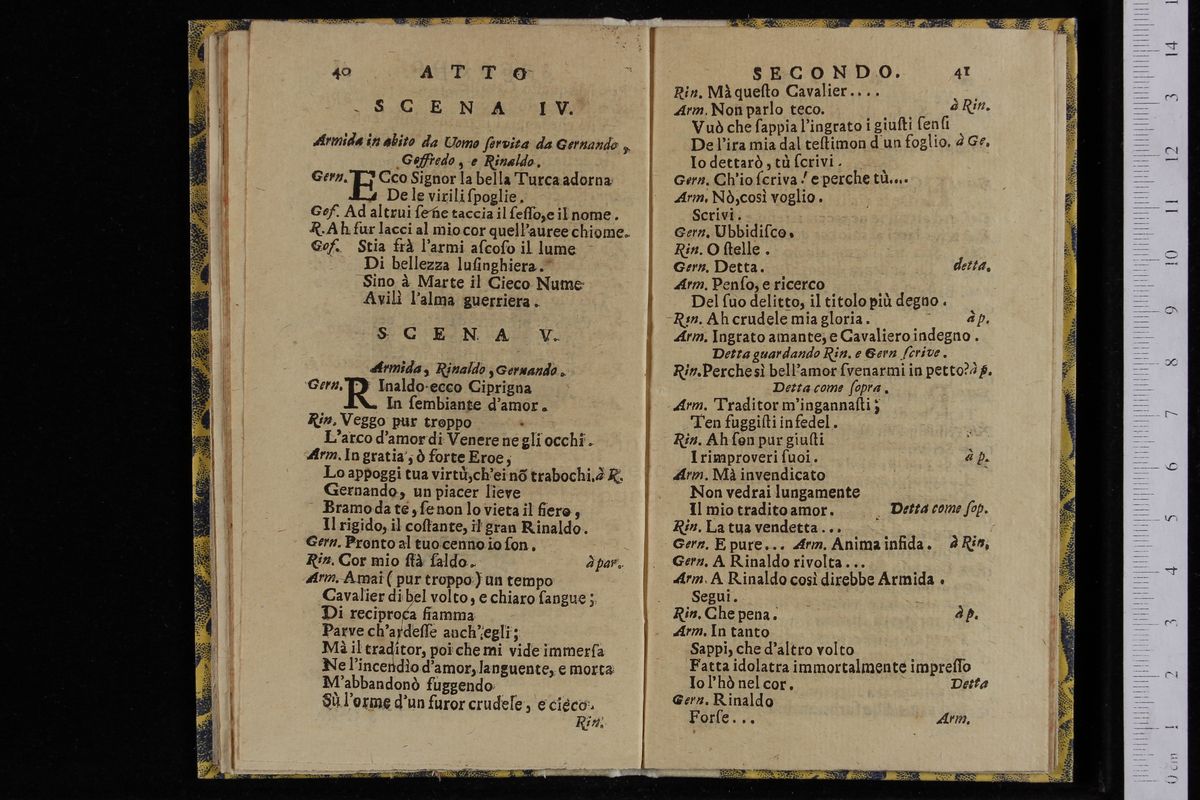 40 ATTO
SCENA IV.
Armida in abito da Uomo ſervita da Gernando,
Goffredo, e Rinaldo.
Gern. ECco Signor la bella Turca adorna
De le virili ſpoglie.
Gof. Ad altrui ſene taccia il ſeſſo, e il nome.
R. Ah fur lacci al mio cor quell'auree chiome.
Gof. Stia frà l'armi aſcoſo il lume
Di bellezza luſinghiera.
Sino à Marte il Cieco Nume
Avilì l'alma guerriera.
SCENA V.
Armida, Rinaldo, Gernando.
Gern. RInaldo ecco Ciprigna
In ſembiante d'amor.
Rin. Veggo pur troppo
L'arco d'amor di Venere ne gli occhi.
Arm. In gratia, ò forte Eroe,
Lo appoggi tua virtù, ch'ei nõ trabochi. à R.
Gernando, un piacer lieve
Bramo da te, ſe non lo vieta il fiero,
Il rigido, il coſtante, il gran Rinaldo.
Gern. Pronto al tuo cenno io ſon.
Rin. Cor mio ſtà ſaldo. à par.
Arm. Amai (pur troppo) un tempo
Cavalier di bel volto, e chiaro ſangue;
Di reciproca fiamma
Parve ch'ardeſſe anch'egli;
Mà il traditor, poi che mi vide immerſa
Ne l'incendio d'amor, languente, e morta
M'abbandonò fuggendo
Sù l'orme d'un furor crudele, e cieco.
Rin.
SECONDO. 41
Rin. Mà queſto Cavalier....
Arm. Non parlo teco. à Rin.
Vuò che ſappia l'ingrato i giuſti ſenſi
De l'ira mia dal teſtimon d un foglio. à Ge.
Io dettarò, tù ſcrivi.
Gern. Ch'io ſcriva! e perche tù....
Arm. Nò, così voglio.
Scrivi.
Gern. Ubbidiſco.
Rin. O ſtelle.
Gern. Detta. detta.
Arm. Penſo, e ricerco
Del ſuo delitto, il titolo più degno.
Rin. Ah crudele mia gloria. à p.
Arm. Ingrato amante, e Cavaliero indegno.
Detta guardando Rin. e Gern ſcrive.
Rin. Perche sì bell'amor ſvenarmi in petto? à p.
Detta come ſopra.
Arm. Traditor m'ingannaſti;
Ten fuggiſti infedel.
Rin. Ah ſon pur giuſti
I rimproveri ſuoi. à p.
Arm. Mà invendicato
Non vedrai lungamente
Il mio tradito amor. Detta come ſop.
Rin. La tua vendetta...
Gern. E pure... Arm. Anima infida. à Rin.
Gern. A Rinaldo rivolta...
Arm. A Rinaldo così direbbe Armida.
Segui.
Rin. Che pena. à p.
Arm. In tanto
Sappi, che d'altro volto
Fatta idolatra immortalmente impreſſo
Io l'hò nel cor. Detta
Gern. Rinaldo
Forſe... Arm.
14
13
12
11
10
9
8
7
6
5
4
3
2
1
0 cm